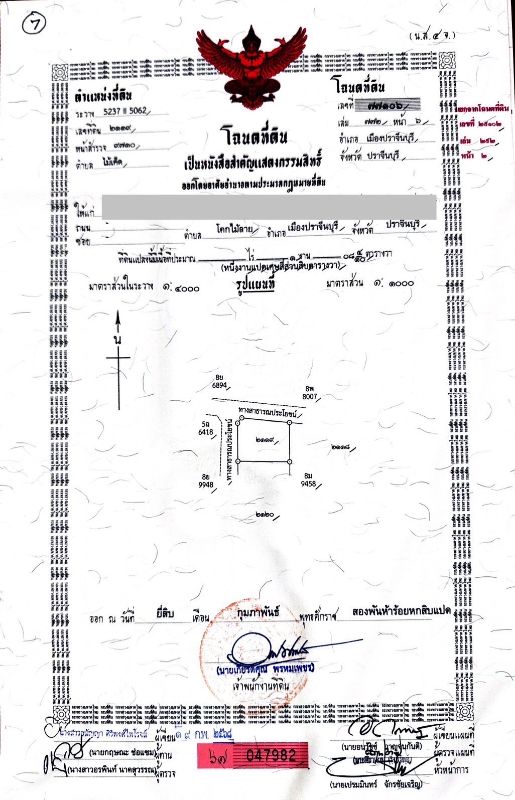 7
(น.ส.๔ จ.)
ตำแหน่งที่ดิน
ระวาง 5237 II 5062
เลขที่ดิน ๒๑๑๙
หน้าสำรวจ ๙๗๑๐
ตำบล ไม้เค็ด
โฉนดที่ดิน
เป็นหนังสือสำคัญแสดงกรรมสิทธิ์
ออกโดยอาศัยอำนาจตามประมวลกฎหมายที่ดิน
โฉนดที่ดิน
เลขที่ ๗๗๑๐๖
เล่ม ๗๗๒ หน้า ๖
อำเภอ เมืองปราจีนบุรี
จังหวัด ปราจีนบุรี
แยกจากโฉนดที่ดิน
เลขที่ ๒๕๑๐๒
เล่ม ๒๕๒
หน้า ๒
ให้แก่
ถนน
ซอย ตำบล โคกไม้ลาย อำเภอ เมืองปราจีนบุรี จังหวัด ปราจีนบุรี
ที่ดินแปลงนี้มีเนื้อที่ประมาณ ไร่ ๑ งาน ตารางวา
มาตราส่วนในระวาง ๑:๔๐๐๐ รูปแผนที่ มาตราส่วน ๑:๑๐๐๐
น
6894
8007
ทางสาธารณประโยชน์
6418
ทางสาธารณประโยชน์
๒๑๑๙
๒๑๑๘
9948
9458
๒๑๒๐
ออก ณ วันที่ ยี่สิบ เดือน กุมภาพันธ์ พุทธศักราช สองพันห้าร้อยหกสิบแปด
เจ้าพนักงานที่ดิน
ผู้เขียน
(นายกฤษณะ ช่อแซม) ผู้ทาน
(นางสาวอรพินท์ นาคสุวรรณ) ผู้ตรวจ
๑๙ ก.พ. ๒๕๖๘
๖๗ 047982
ผู้เขียนแผนที่
ผู้ตรวจแผนที่
หัวหน้าการ
(นายเปรมมินทร์ จักรชัยเจริญ)